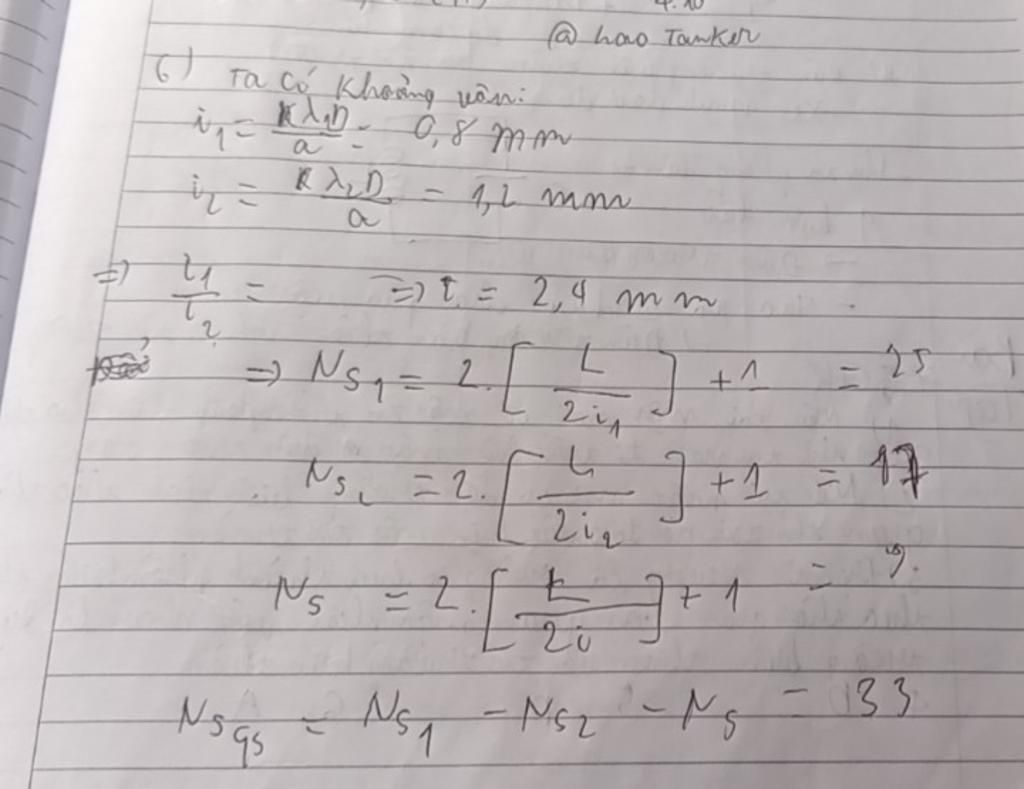 4.10
@ hao Tanker
6) Ta có khoảng vân:
i₁ = kλ₁D/a = 0,8 mm
i₂ = kλ₂D/a = 1,2 mm
=> i₁/i₂ = => i = 2,4 mm
=> Ns₁ = 2.[L/2i₁] + 1 = 25
Ns₂ = 2.[L/2i₂] + 1 = 17
Ns = 2.[L/2i] + 1 = 9.
Nsqs = Ns₁ - Ns₂ - Ns = 33